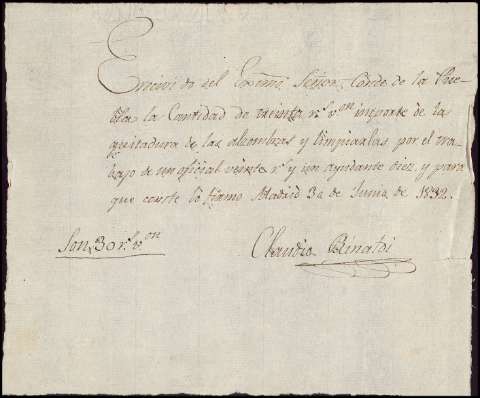 Erecivi do del Exmo. Señor Conde de la Pue-
bla la Cantidad de treinta rs. von importe de la
quitadura de las alombras y limpiarlas por el tra-
bajo de un oficial veinte rs. y un ayudante diez y para
que conste lo firmo Madrid 30 de Junio de 1832.
Son 30 rs. von
Claudio Binatdi